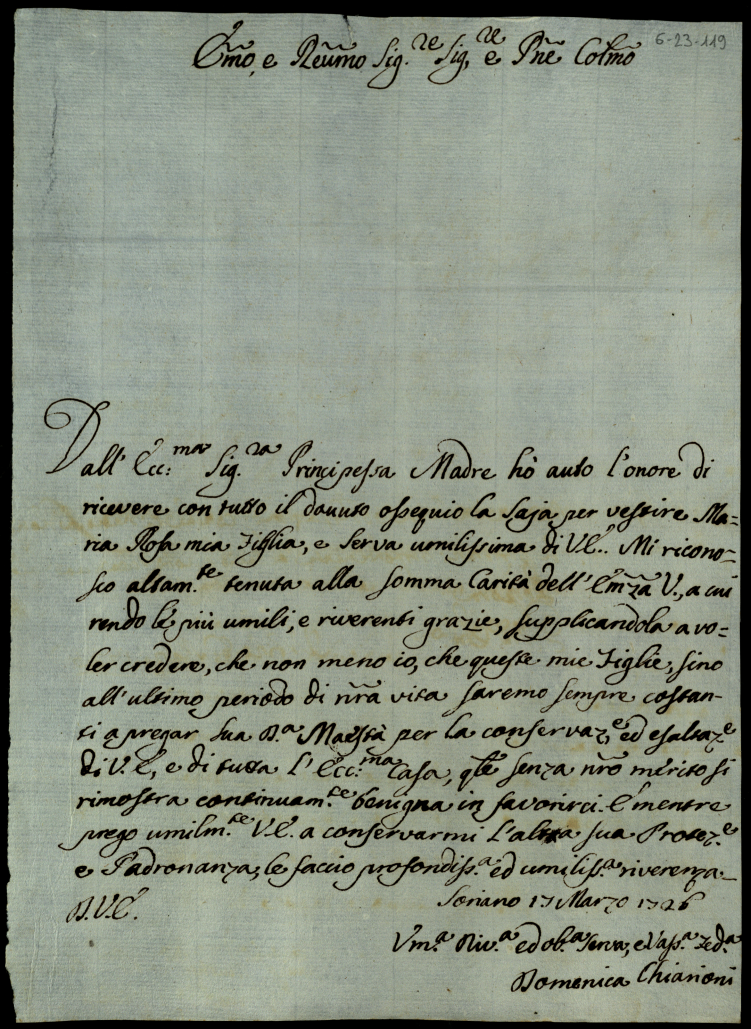 6-23-119
Em̃o, e Reũmo Sig.re Sig.re e Pñe Colm̃o
Dall' Ecc:ma Sig.ra Principessa Madre hò auto l'onore di
riceuere con tutto il douuto ossequio la Saja per vestire Ma=
ria Rosa mia Figlia, e Serva umilissima di V.E.. Mi ricono=
sco altam.te tenuta alla somma Carità dell' Em̃za V., a cui
rendo le più umili, e riverenti grazie, supplicandola a vo=
ler credere, che non meno io, che queste mie Figlie, sino
all' ultimo periodo di ñra vita saremo sempre costan-
ti a pregar sua D.a Maestà per la conservaz.e ed esaltaz.e
di V.E, e di tutta l'Ecc:ma Casa, q̃le senza ñro merito si
rimostra continuam.te benigna in favorirci. E mentre
prego umilm.te V.E. a conservarmi l'alta sua Protez.e
e Padronanza, le faccio profondiss.a ed umiliss.a riverenza
D.V.E.
Soriano 17 Marzo 1726
Vm.a Div.a ed ob.a Serva, e Vass.a Fed.a
Domenica Chiarioni